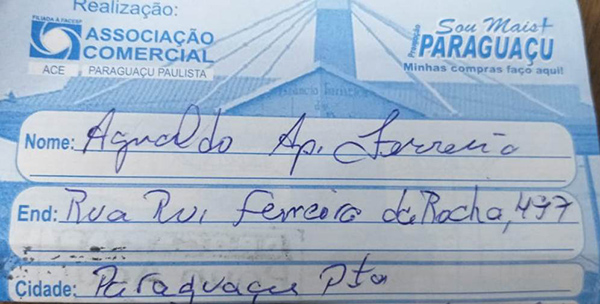 Realização:
FILIADA À FACESP
ASSOCIAÇÃO
COMERCIAL
ACE PARAGUAÇU PAULISTA
Promoção
Sou Mais+
PARAGUAÇU
Minhas compras faço aqui!
Nome: Agnaldo Ap. Ferreira
End: Rua Rui Ferreira da Rocha, 497
Cidade: Paraguaçu Pta